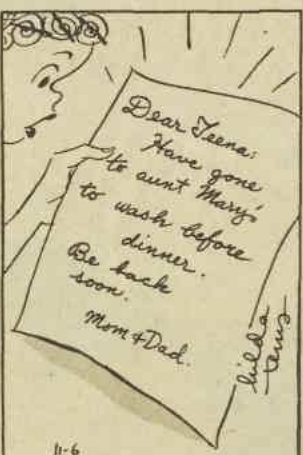 Dear Teena:
Have gone
to aunt Mary's
to wash before
dinner.
Be back
soon.
Mom + Dad.
hilda
terry
11-6